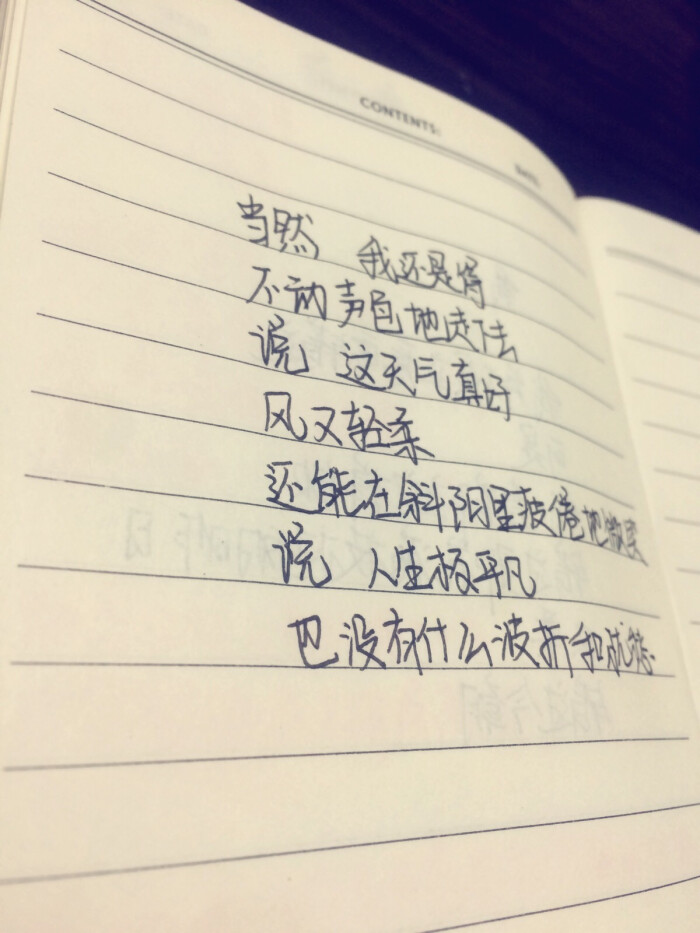 CONTENTS:
DATE
当然 我还是得
不动声色地走下去
说 这天气真好
风又轻柔
还能在斜阳里疲倦地微笑
说 人生极平凡
也没有什么波折和忧愁.